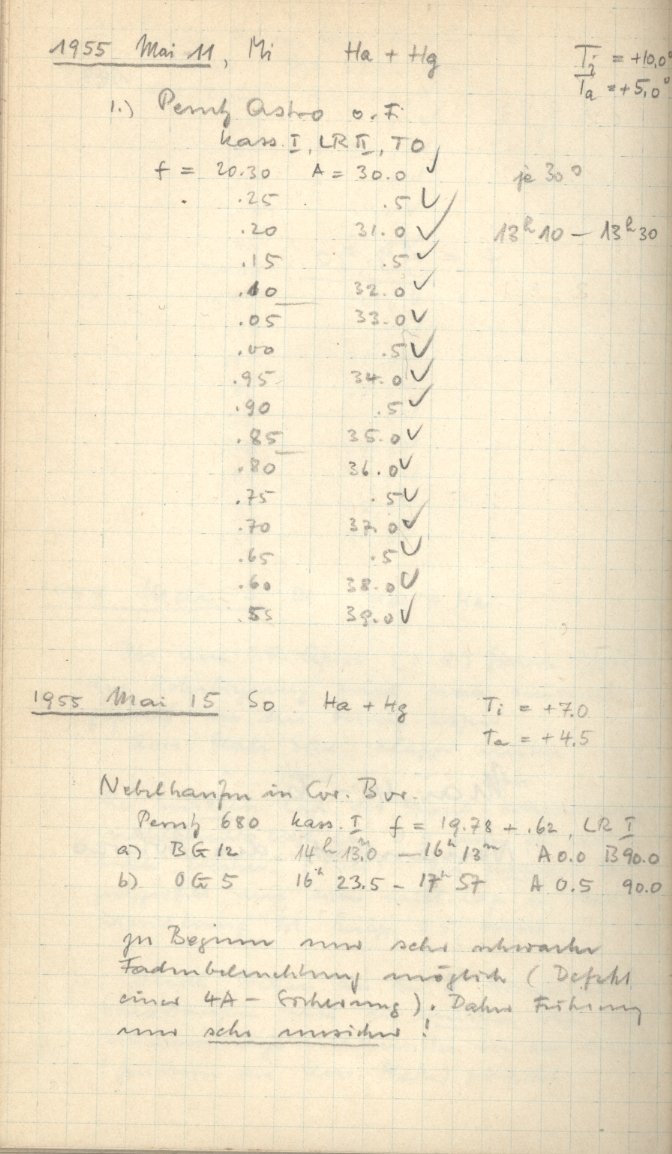 1955 Mai 11, Mi Ha + Hg Ti = +10,0°
Ta = +5,0°
1.) Perutz Astro o. F.
Kass. I, LR II, TO
f = 20.30 A = 30.0 ✓ je 30s
.25 .5 ✓
.20 31.0 ✓ 13h 10 — 13h 30
.15 .5 ✓
.10 32.0 ✓
.05 33.0 ✓
.00 .5 ✓
.95 34.0 ✓
.90 .5 ✓
.85 35.0 ✓
.80 36.0 ✓
.75 .5 ✓
.70 37.0 ✓
.65 .5 ✓
.60 38.0 ✓
.55 39.0 ✓
1955 Mai 15 So Ha + Hg Ti = +7.0
Ta = +4.5
Nebelhaufen in Cor. Bor.
Perutz 680 Kass. I f = 19.78 + .62, LR I
a) BG 12 14h 13m0 — 16h 13m A 0.0 B 90.0
b) OG 5 16h 23.5 — 17h 57 A 0.5 90.0
zu Beginn nur sehr schwache
Fadenbeleuchtung möglich (Defekt
einer 4A - Sicherung). Daher Führung
nur sehr unsicher!